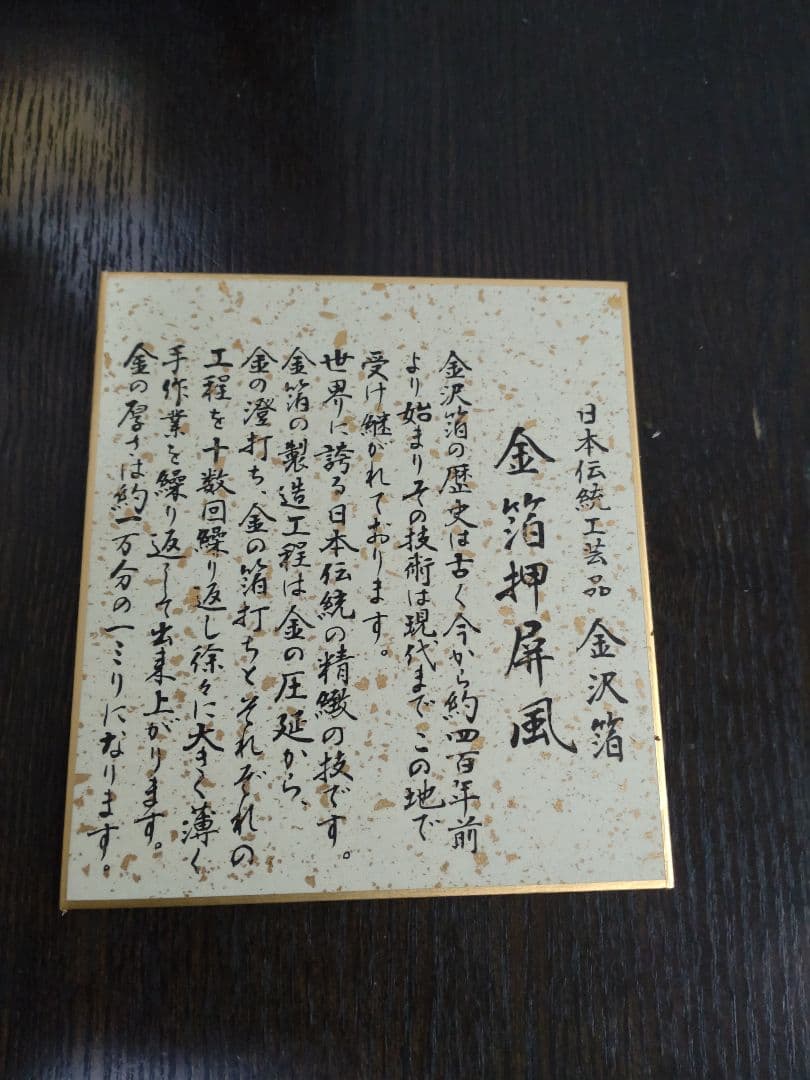 日本伝統工芸品 金沢箔
金箔押屏風
金沢箔の歴史は古く今から約四百年前
より始まりその技術は現代までこの地で
受け継がれております。
世界に誇る日本伝統の精緻の技です。
金箔の製造工程は金の圧延から、
金の澄打ち、金の箔打ちとそれぞれの
工程を十数回繰り返し徐々に大きく薄く
手作業を繰り返して出来上がります。
金の厚さは約一万分の一ミリになります。